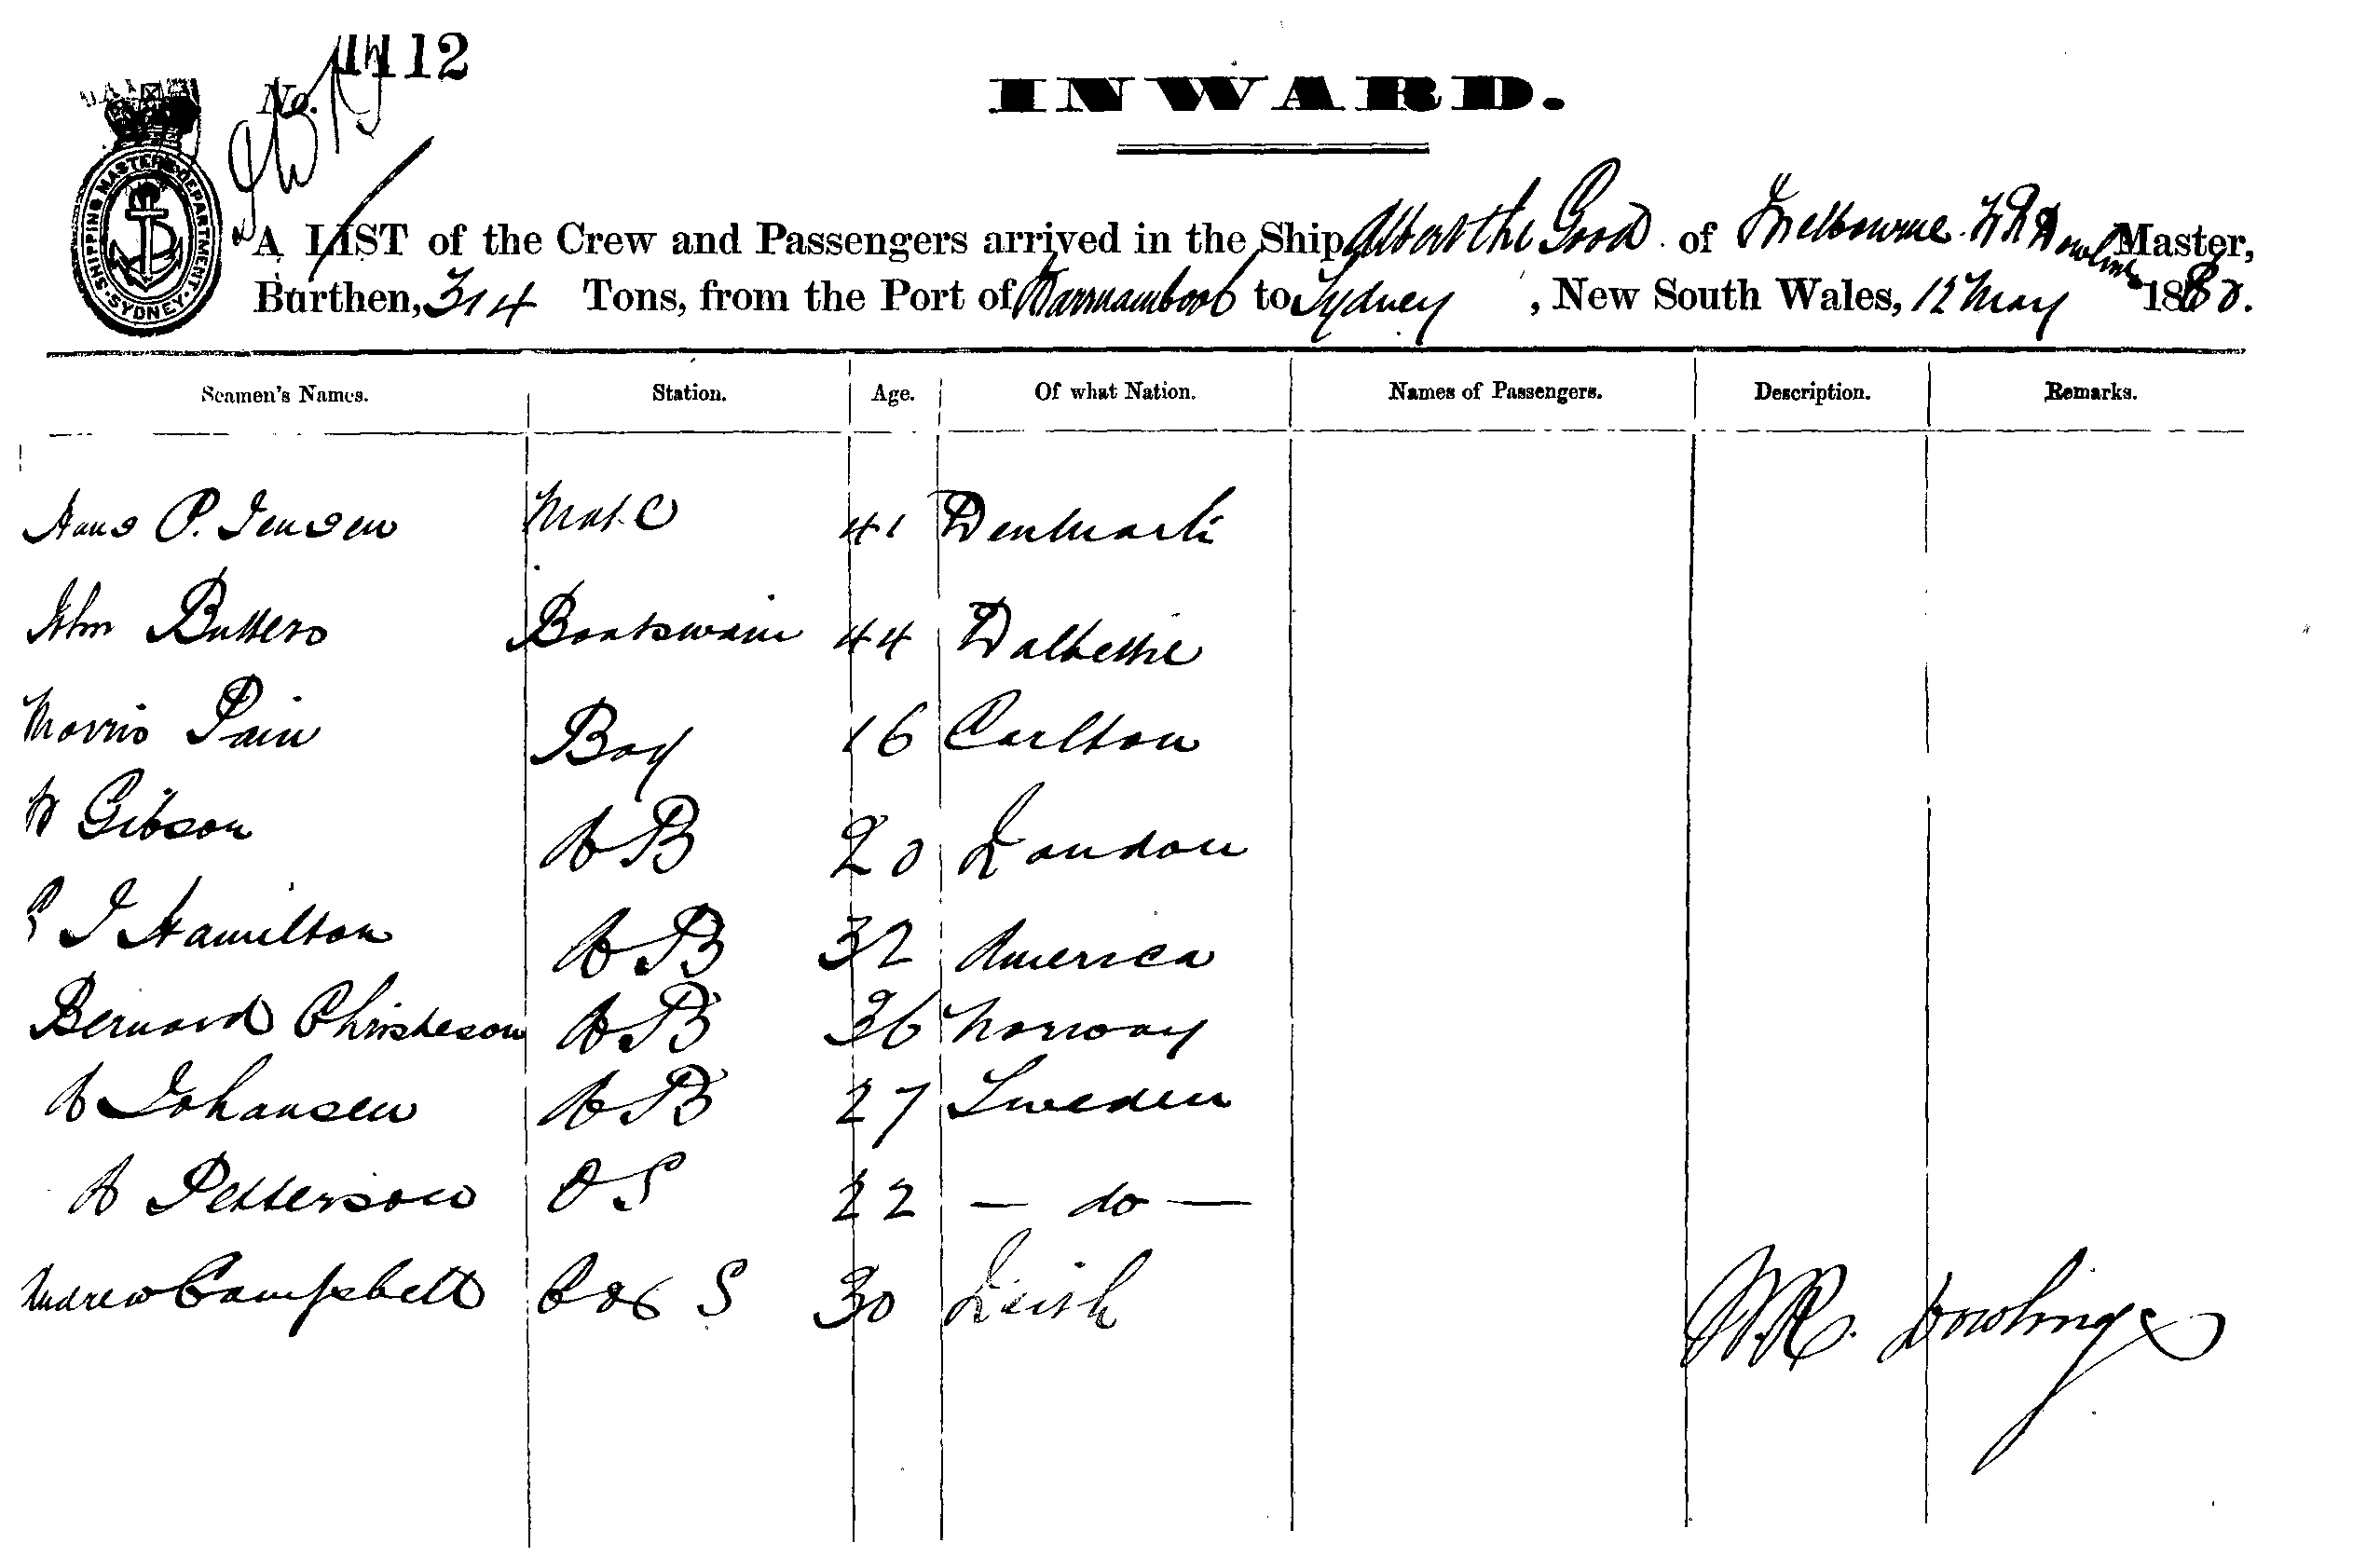 No. 1112
INWARD.
SHIPPING MASTER'S DEPARTMENT. SYDNEY.
A LIST of the Crew and Passengers arrived in the Ship Albert the Good of Melbourne. W R Dowling Master,
Burthen, 314 Tons, from the Port of Warrnambool to Sydney, New South Wales, 12 May 1880.
Seamen's Names. Station. Age. Of what Nation. Names of Passengers. Description. Remarks.
Hans P. Jensen Mate 41 Denmark
John Butters Boatswain 44 Dalbettie
Morris Pain Boy 16 Carlton
W Gibson AB 20 London
J Hamilton AB 32 America
Bernard Christeson AB 36 Norway
A Johansen AB 27 Sweden
A Petterson OS 22 — do —
Andrew Campbell S 30 Leith
WR. Dowling